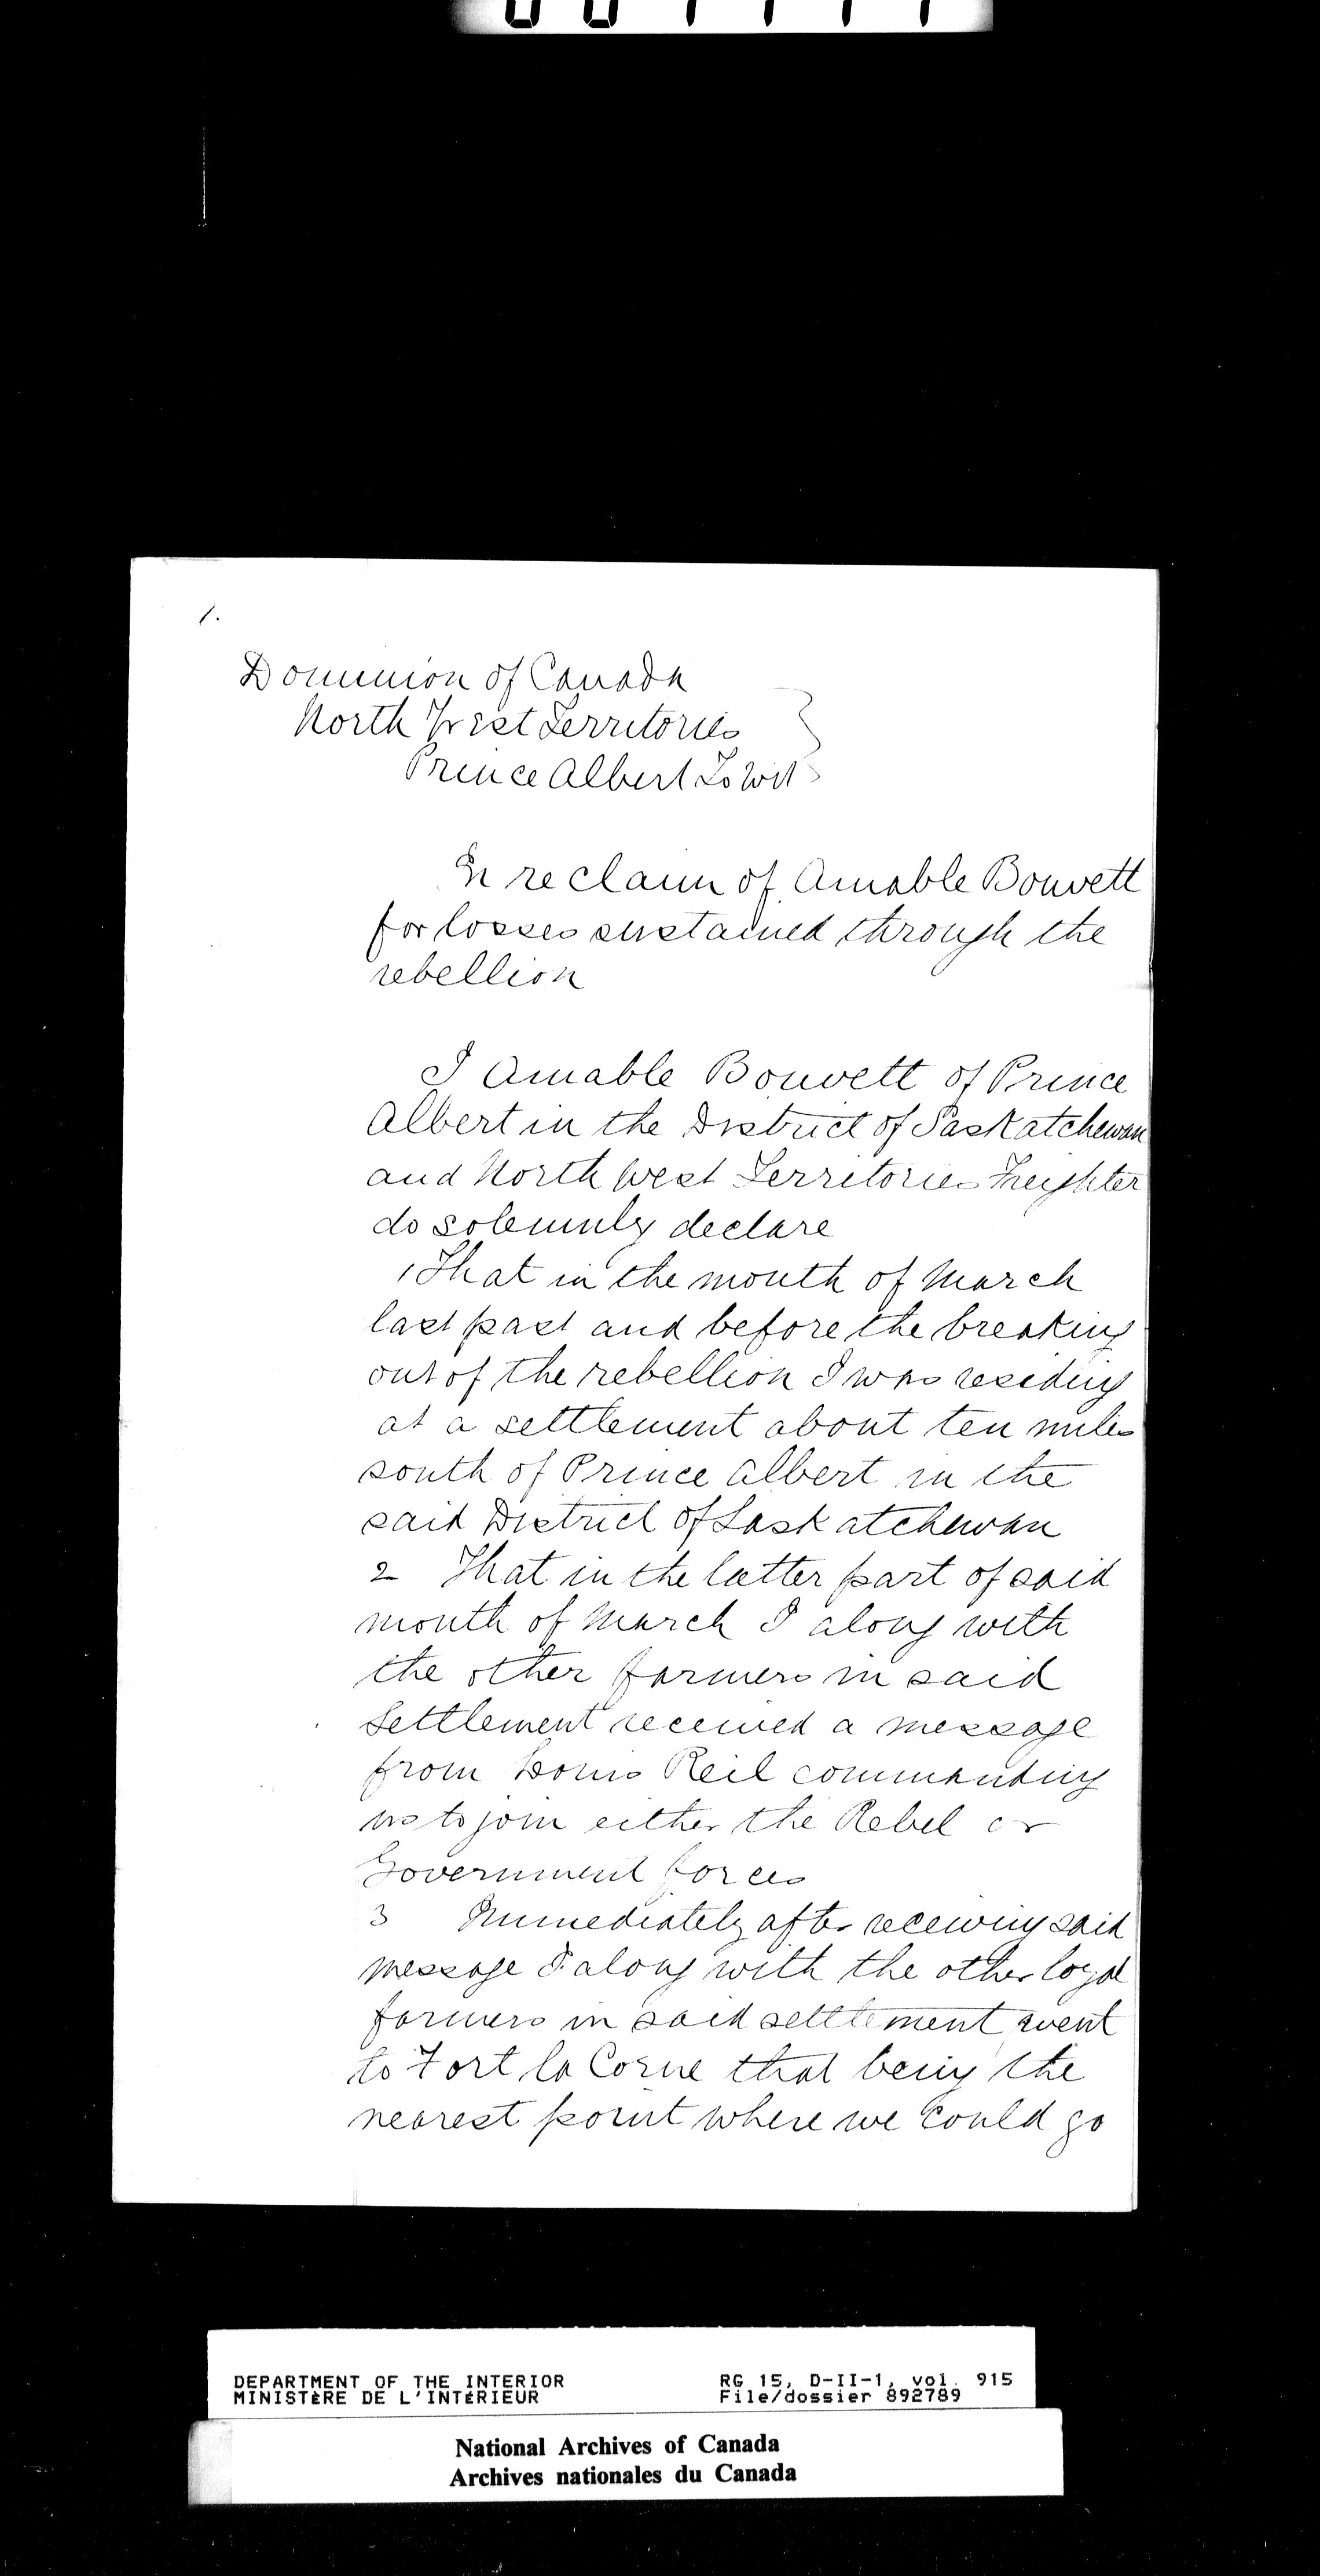 1.
Dominion of Canada
North West Territories
Prince Albert To Wit
In re claim of Amable Bouvett
for losses sustained through the
rebellion
I Amable Bouvett of Prince
Albert in the District of Saskatchewan
and North West Territories Freighter
do solemnly declare
1 That in the month of March
last past and before the breaking
out of the rebellion I was residing
at a settlement about ten miles
south of Prince Albert in the
said District of Saskatchewan
2 That in the latter part of said
month of March I along with
the other farmers in said
Settlement received a message
from Louis Reil commanding
us to join either the Rebel or
Government forces
3 Immediately after receiving said
message I along with the other loyal
farmers in said settlement went
to Fort la Corne that being the
nearest point where we could go
DEPARTMENT OF THE INTERIOR RG 15, D-II-1, vol. 915
MINISTÈRE DE L'INTÉRIEUR File/dossier 892789
National Archives of Canada
Archives nationales du Canada